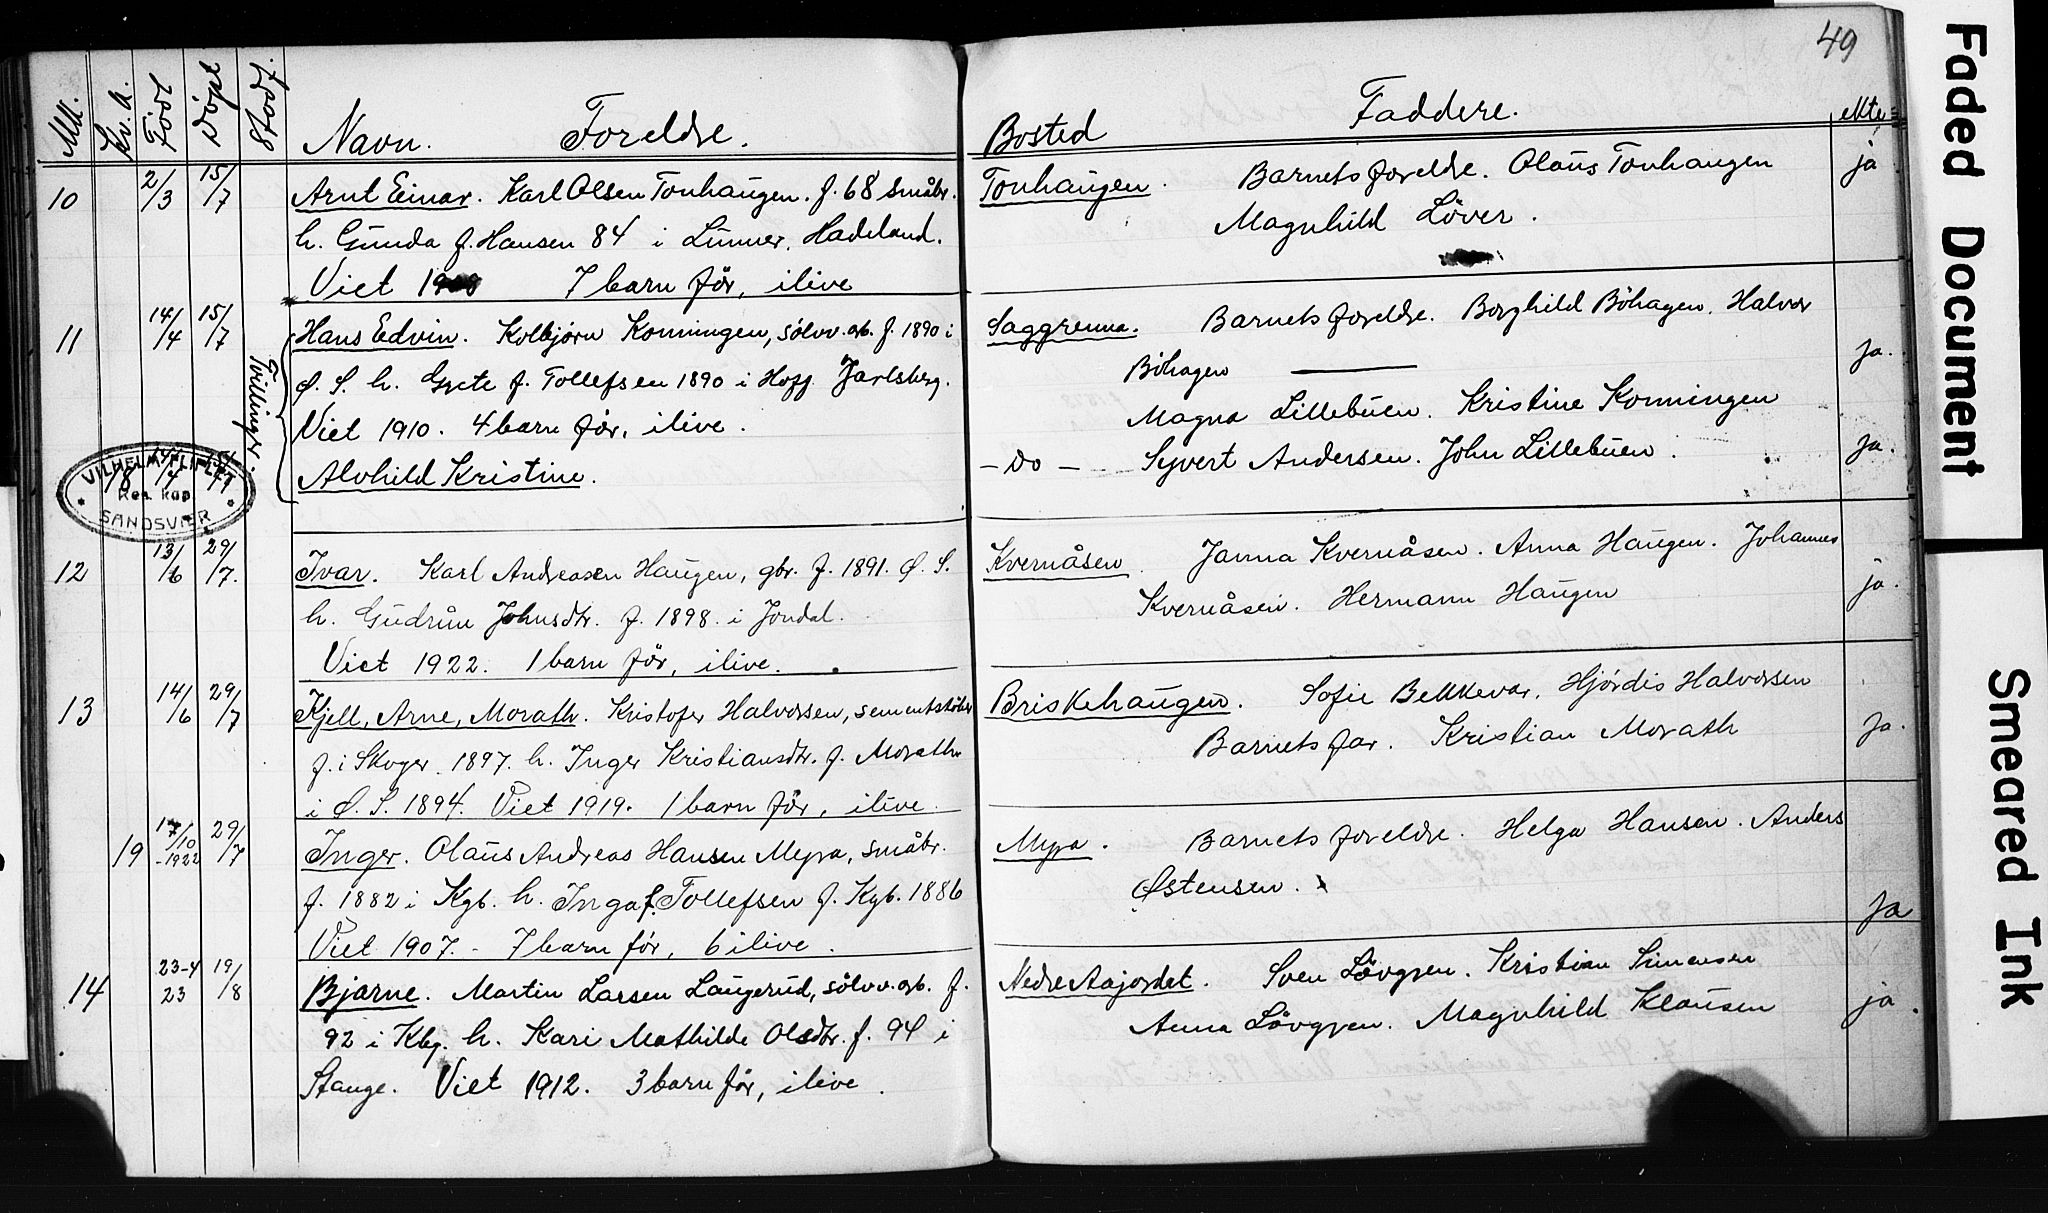 49
Mk. Kv. A. Født Døpt Stadf. Navn. Foreldre. Bosted Faddere. ekte
10 2/3 15/7 Arnt Einar. Karl Olsen Tonhaugen. f. 68 småbr. Tonhaugen. Barnets foreldre. Olaus Tonhaugen ja
h. Gunda f. Hansen 84 i Lunner, Hadeland. Magnhild Löver.
Viet 7 barn før, ilive
11 14/4 15/7 Hans Edvin. Kolbjørn Konningen, sølvv.arb. f. 1890 i Saggrenna. Barnets foreldre. Borghild Böhagen, Halvor
Ø. S. h. Grete f. Tollefsen 1890 i Hoff Jarlsberg. Böhagen ja.
Viet 1910. 4 barn før, ilive. Magna Lillebuen. Kristine Konningen
Tvillinger.
18 14/4 15/7 Alvhild Kristine. - Do - Syvert Andersen. John Lillebuen. ja.
VILHELM FLIFLET
Res. kap
SANDSVÆR
12 13/6 29/7. Ivar. Karl Andreasen Haugen, gbr. f. 1891. Ø. S. Kvernåsen Janna Kvernåsen. Anna Haugen. Johannes
h. Gudrun Johnsdtr. f. 1898. i Jondal. Kvernåsen. Hermann Haugen ja.
Viet 1922. 1 barn før, ilive.
13 14/6 29/7 Kjell, Arne, Morath. Kristofer Halvorsen, sementstøber Briskehaugen. Sofie Bekkevar. Hjördis Halvorsen
f. i Skoger 1897. h. Inger Kristiansdtr. f. Morath Barnets far. Kristian Morath ja.
i Ø. S. 1894. Viet 1919. 1 barn før, ilive.
19 17/10 -1922 29/7 Inger. Olaus Andreas Hansen Myra, småbr. Myra. Barnets foreldre. Helga Hansen. Anders
f. 1882 i Kgb. h. Inga f. Tollefsen f. Kgb. 1886 Østensen. ja
Viet 1907. - 7 barn før, 6 ilive.
14 23-4 23 19/8 Bjarne. Martin Larsen Laugerud, sølvv.arb. f. Nedre Aajordet. Sven Lövgren. Kristian Simensen
92 i Kbg. h. Kari Mathilde Olsdtr. f. 94 i Anna Lövgren. Magnhild Klausen ja.
Stange. Viet 1912. 3 barn før, ilive.
Faded Document
Smeared Ink